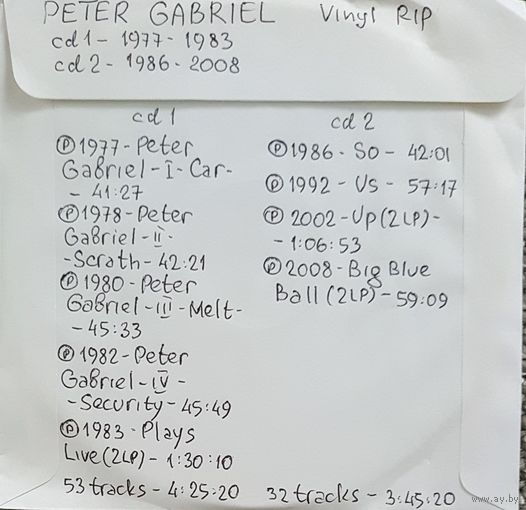 PETER GABRIEL Vinyl RIP
cd1 - 1977 - 1983
cd2 - 1986 - 2008
cd1
Ⓟ1977 - Peter
Gabriel - I - Car -
- 41:27
Ⓟ1978 - Peter
Gabriel - II -
- Scrath - 42:21
Ⓟ1980 - Peter
Gabriel - III - Melt -
- 45:33
Ⓟ1982 - Peter
Gabriel - IV -
- Security - 45:49
Ⓟ1983 - Plays
Live (2LP) - 1:30:10
53 tracks - 4:25:20
cd2
Ⓟ1986 - So - 42:01
Ⓟ1992 - Us - 57:17
Ⓟ2002 - Up (2LP) -
- 1:06:53
Ⓟ2008 - Big Blue
Ball (2LP) - 59:09
32 tracks - 3:45:20
www.ay.by